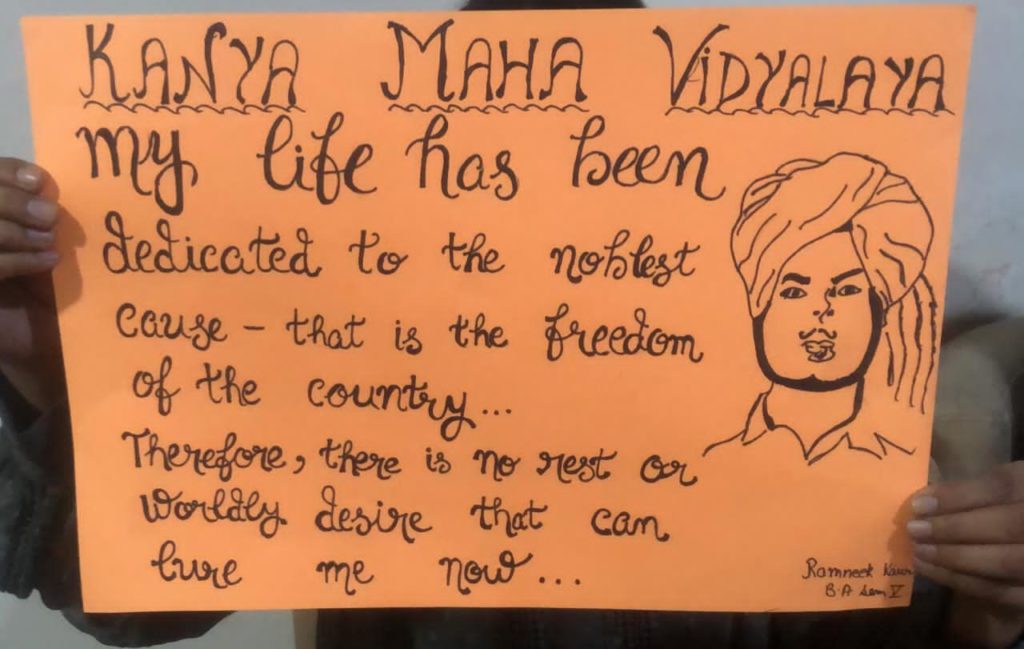 KANYA MAHA VIDYALAYA
my life has been
dedicated to the noblest
cause - that is the freedom
of the country...
Therefore, there is no rest or
worldly desire that can
lure me now...
Ramneek Kaur
B.A Sem V